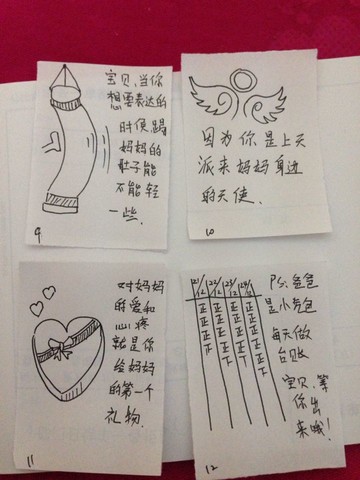 宝贝,当你
想要表达的
时侯,踢
妈妈的
肚子能
不能轻
一些.
9
因为你是上天
派来妈妈身边
的天使.
10
对妈妈
的爱和
心疼
就是你
给妈妈
的第一个
礼物.
11
21/12 22/12 23/12 24/12
正 正 正 正
正 正 正 正
正 正 正 正
PS:爸爸
是小
每天做
宝贝,等
你出
来哦!
12